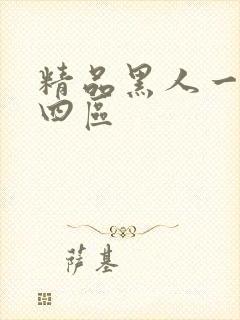 精品黑人一
四區
萨基